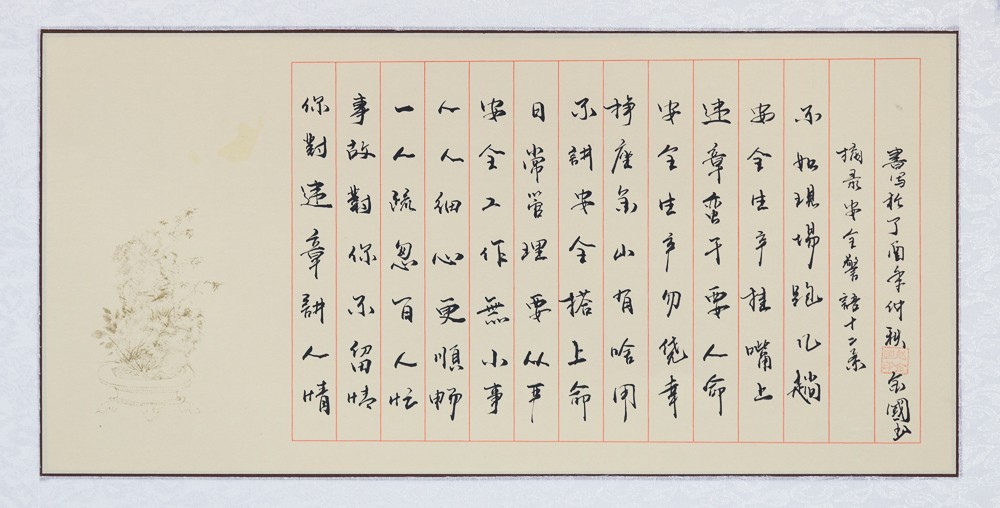 你對违章講人情
事故對你不留情
一人疏忽百人忙
人人细心更順畅
安全工作無小事
日常管理要从严
不講安全搭上命
挣座金山有啥用
安全生产勿侥幸
违章蛮干要人命
安全生产挂嘴上
不如现場跑几趟
摘录安全警語十二条
書写於丁酉年仲秋 國